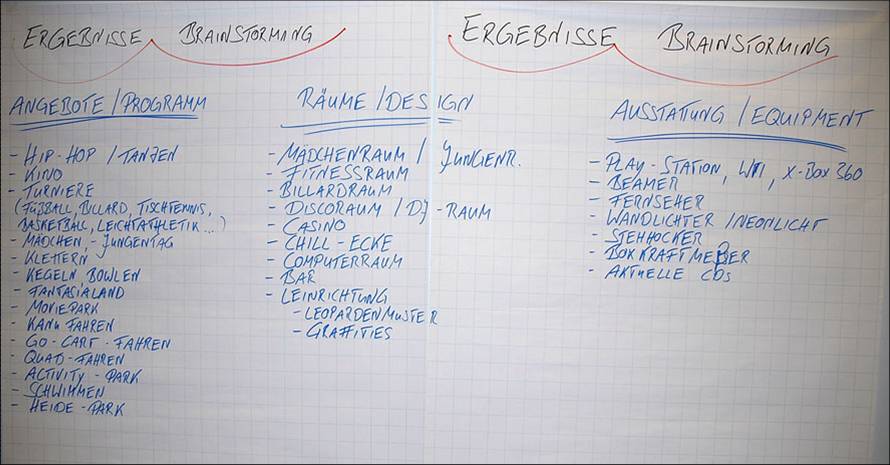 ERGEBNISSE BRAINSTORMING
ANGEBOTE / PROGRAMM
- HIP-HOP / TANZEN
- KINO
- TURNIERE
(FUßBALL, BILLARD, TISCHTENNIS,
BASKETBALL, LEICHTATHLETIK...)
- MÄDCHEN,- JUNGENTAG
- KLETTERN
- KEGELN, BOWLEN
- FANTASIALAND
- MOVIEPARK
- KANU FAHREN
- GO-CART-FAHREN
- QUAD-FAHREN
- ACTIVITY-PARK
- SCHWIMMEN
- HEIDE-PARK
RÄUME / DESIGN
- MÄDCHENRAUM / JUNGENR.
- FITNESSRAUM
- BILLARDRAUM
- DISCORAUM / DJ-RAUM
- CASINO
- CHILL-ECKE
- COMPUTERRAUM
- BAR
- LEINRICHTUNG
- LEOPARDENMUSTER
- GRAFFITIES
ERGEBNISSE BRAINSTORMING
AUSSTATTUNG / EQUIPMENT
- PLAY-STATION, WII, X-BOX 360
- BEAMER
- FERNSEHER
- WANDLICHTER / NEONLICHT
- STEHHOCKER
- BOXKRAFTMEßER
- AKTUELLE CDs